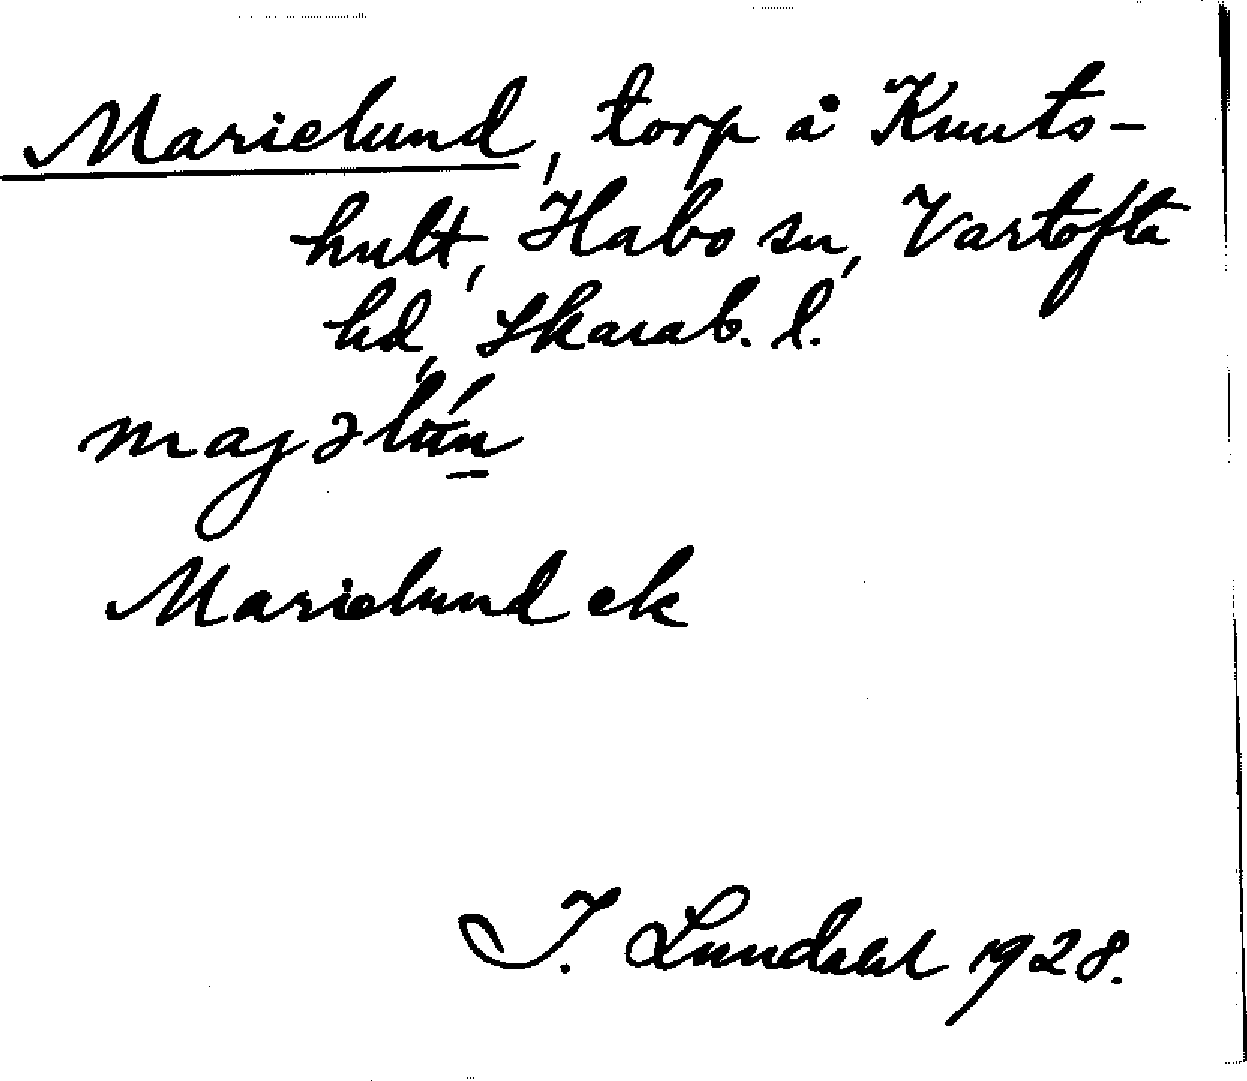 Marielund, torp å Knuts-
hult, Habo sn, Vartofta
hd, Skarab. l.
Marielund ek
J. Lundahl 1928.